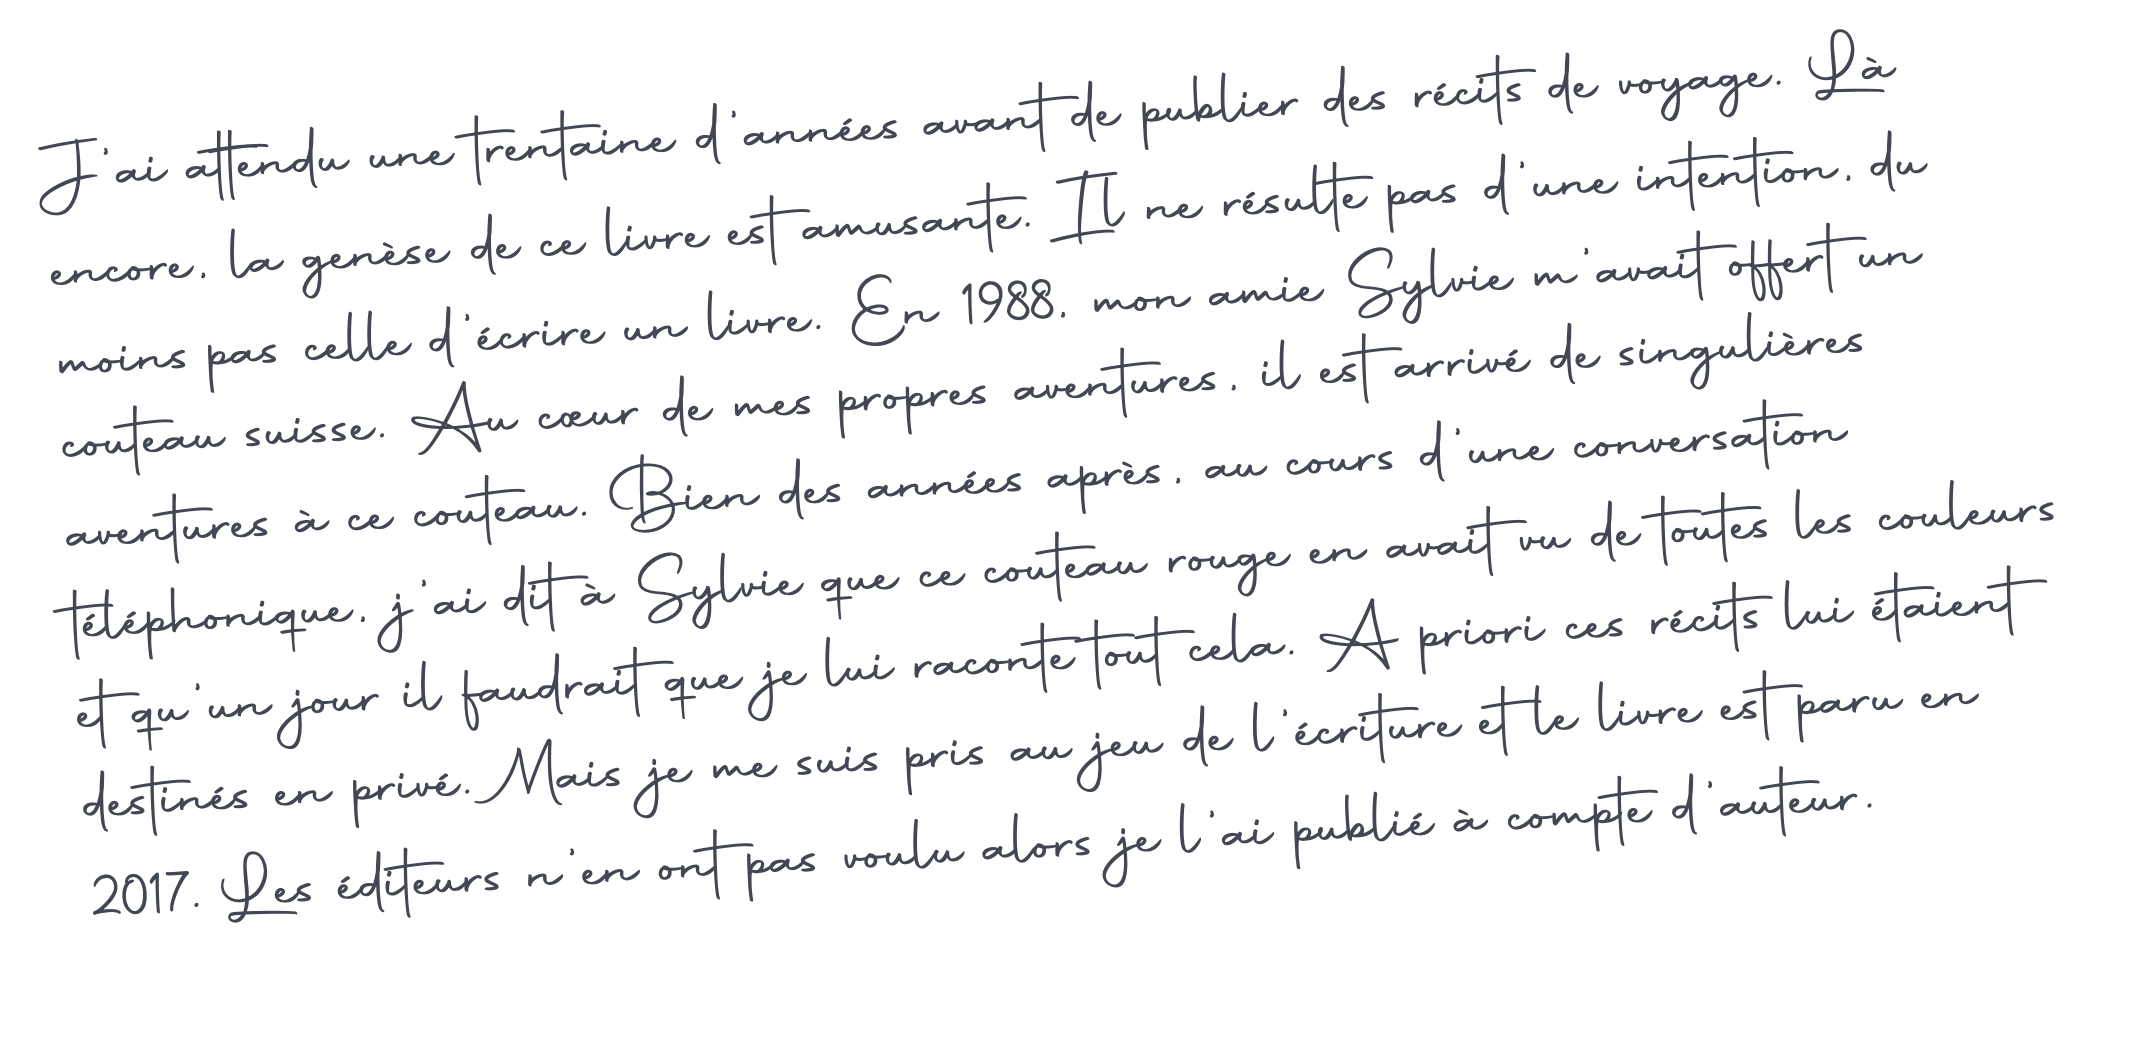 J'ai attendu une trentaine d'années avant de publier des récits de voyage. Là
encore, la genèse de ce livre est amusante. Il ne résulte pas d'une intention, du
moins pas celle d'écrire un livre. En 1988, mon amie Sylvie m'avait offert un
couteau suisse. Au cœur de mes propres aventures, il est arrivé de singulières
aventures à ce couteau. Bien des années après, au cours d'une conversation
téléphonique, j'ai dit à Sylvie que ce couteau rouge en avait vu de toutes les couleurs
et qu'un jour il faudrait que je lui raconte tout cela. A priori ces récits lui étaient
destinés en privé. Mais je me suis pris au jeu de l'écriture et le livre est paru en
2017. Les éditeurs n'en ont pas voulu alors je l'ai publié à compte d'auteur.